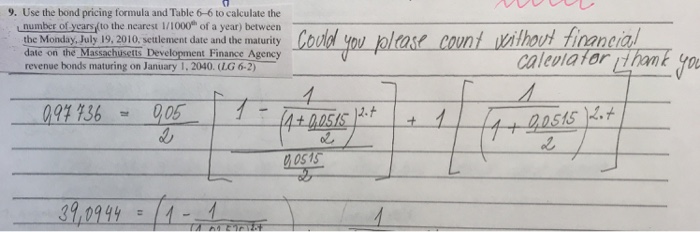 9. Use the bond pricing formula and Table 6–6 to calculate the
number of years (to the nearest 1/1000th of a year) between
the Monday, July 19, 2010, settlement date and the maturity
date on the Massachusetts Development Finance Agency
revenue bonds maturing on January 1, 2040. (LG 6-2)
Could you please count without financial
calculator, thank you
0,97736 = 0,05/2 [ (1 - 1/(1+0,0515/2)^2.t) / (0,0515/2) ] + 1 [ 1/(1+0,0515/2)^2.t ]
39,0944 = (1 - 1 1